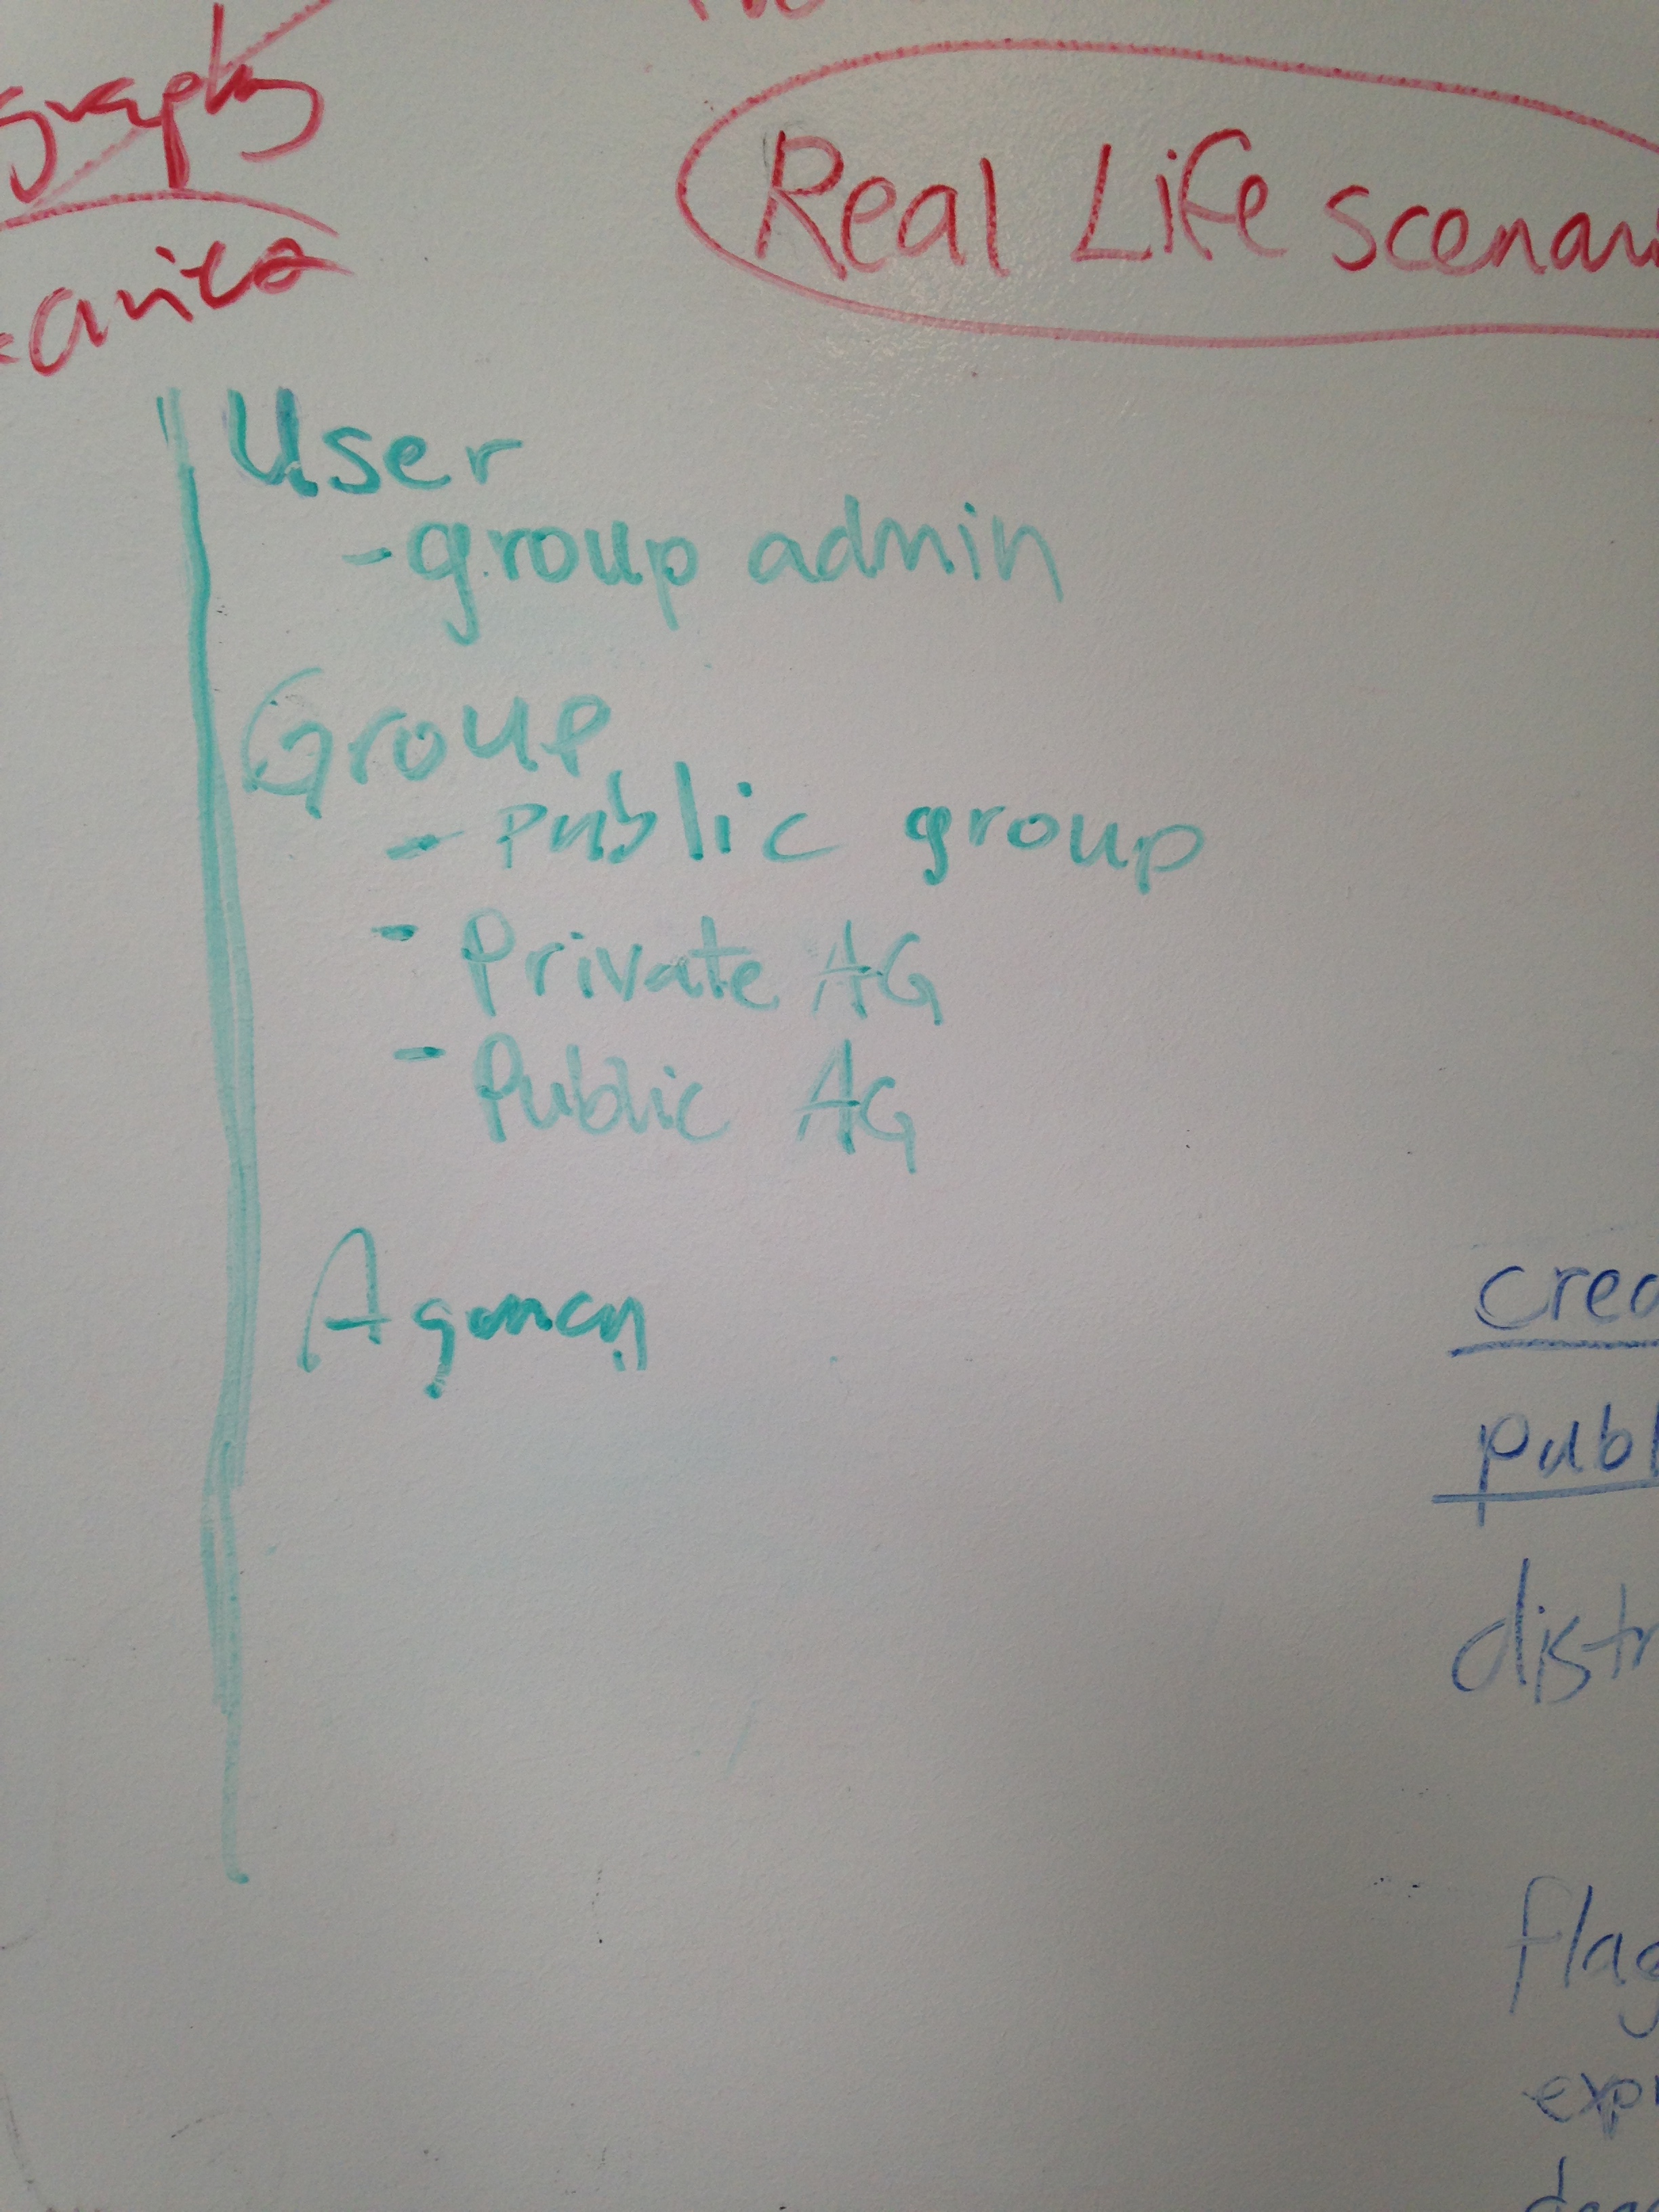 Real Life scenari
User
- group admin
Group
- Public group
- Private AG
- Public AG
Agency
crea
publ
distr
flag